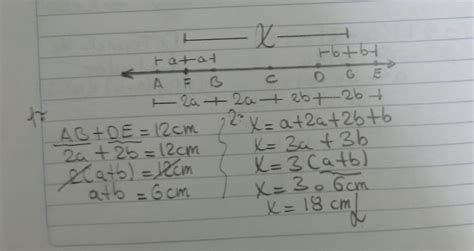 x
a + a b + b
A F B C D G E
2a + 2a + 2b + 2b
1º
AB + DE = 12cm
2a + 2b = 12cm
2(a+b) = 12cm
a+b = 6cm
2º
x = a + 2a + 2b + b
x = 3a + 3b
x = 3(a+b)
x = 3 . 6cm
x = 18 cm